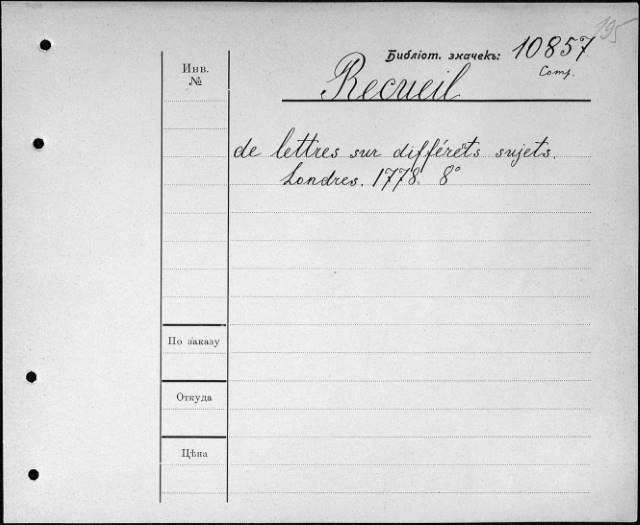 195
Библіот. значекъ: 10857
Comp.
Recueil
Инв.
№
de lettres sur différets sujets.
Londres. 1778. 8°
По заказу
Откуда
Цѣна